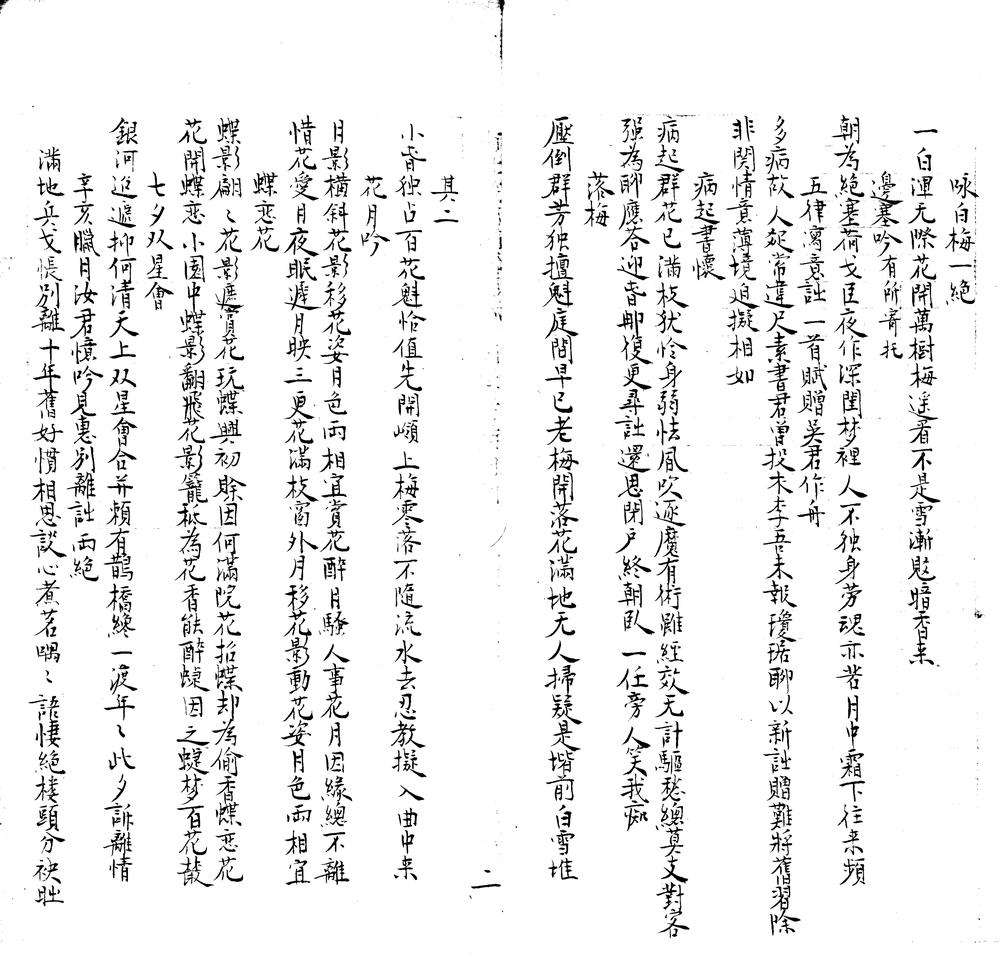 咏白梅一絕
一白連无際花開萬樹梅遙看不是雪漸覔暗香来
邊塞吟有所寄托
朝為絕塞荷戈臣夜作深閨梦裡人不独身劳魂亦苦月中霜下往来頻
五律寓意詘一首賦贈吳君作舟
多病故人疑常違尺素書君曾投木李吾未報瓊琚聊以新詘贈難將舊習除
非関情意薄境迫擬相如
病起書懷
病起群花已滿枝犹怜身弱怯風吹逐魔有術雖經效无計驅愁總莫支對客
强為聊應荅迎昏即復更尋詘還思閉户終朝臥一任旁人笑我痴
落梅
壓倒群芳独擅魁庭間早已老梅開落花滿地无人掃疑是堦前白雪堆
二
其二
小昏独占百花魁恰值先開嶺上梅零落不隨流水去忍教擬入曲中来
花月吟
月影橫斜花影移花姿月色両相宜賞花醉月騷人事花月因緣總不離
惜花愛月夜眠遲月映三更花滿枝窗外月移花影動花姿月色両相宜
蝶恋花
蝶影翩〻花影遮賞花玩蝶興初賖因何滿院花招蝶却為偷香蝶恋花
花開蝶恋小園中蝶影翻飛花影籠秪為花香能醉蝶因之蝶梦百花叢
七夕双星會
銀河迢遞抑何清天上双星會合并頼有鵲橋纔一渡年〻此夕訴離情
辛亥臘月汝君憶吟見惠别離詘両絕
滿地兵戈悵别離十年舊好慣相思談心煮茗喁〻語悽絕楼頭分袂時